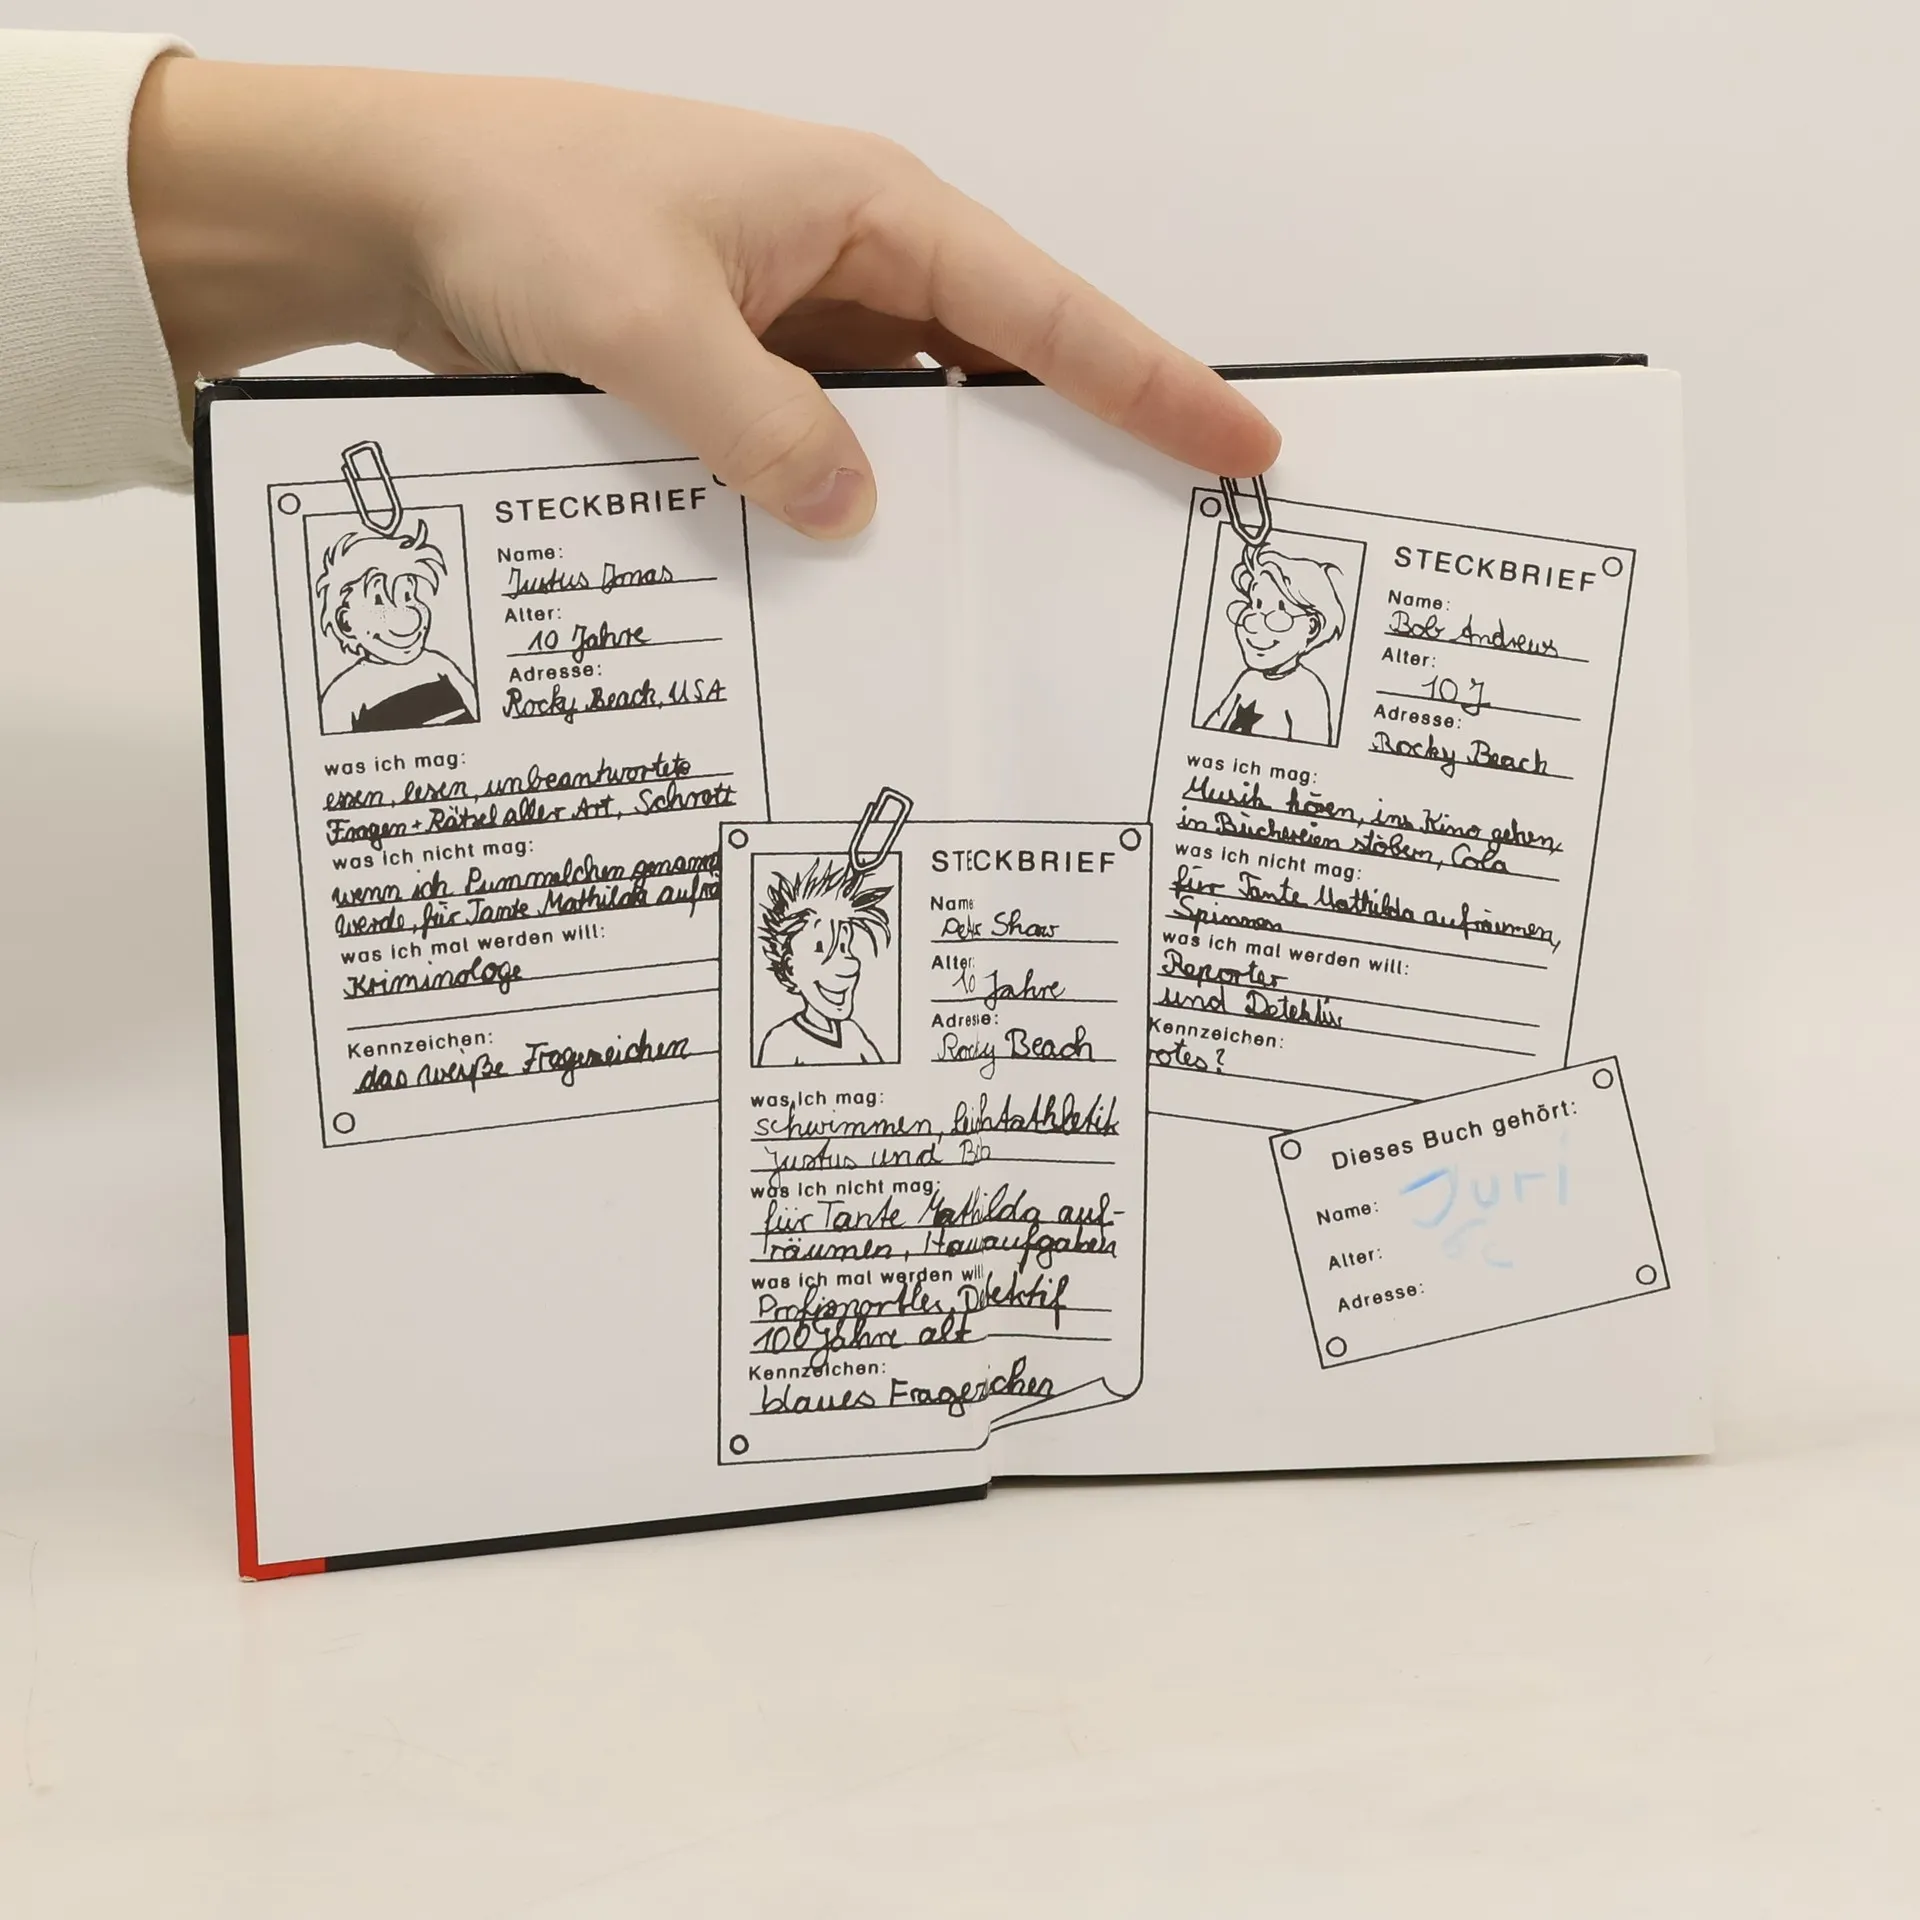 STECKBRIEF
Name:
Justus Jonas
Alter:
10 Jahre
Adresse:
Rocky Beach, USA
was ich mag:
essen, lesen, unbeantwortete
Fragen + Rätsel aller Art, Schrott
was ich nicht mag:
wenn ich Pummelchen genannt
werde, für Tante Mathilda aufrä
was ich mal werden will:
Kriminologe
Kennzeichen:
das weiße Fragezeichen
STECKBRIEF
Name
Peter Shaw
Alter:
10 Jahre
Adresse:
Rocky Beach
was ich mag:
schwimmen, Leichtathletik
Justus und Bob
was ich nicht mag:
für Tante Mathilda auf-
räumen, Hausaufgaben
was ich mal werden will
Profisportler, Detektif
100 Jahre alt
Kennzeichen:
blaues Fragezeichen
STECKBRIEF
Name:
Bob Andrews
Alter:
10 J
Adresse:
Rocky Beach
was ich mag:
Musik hören, ins Kino gehen,
in Büchereien stöbern, Cola
was ich nicht mag:
für Tante Mathilda aufräumen,
Spinnen
was ich mal werden will:
Reporter
und Detektiv
Kennzeichen:
rotes ?
Dieses Buch gehört:
Name: Juri
Alter:
Adresse: